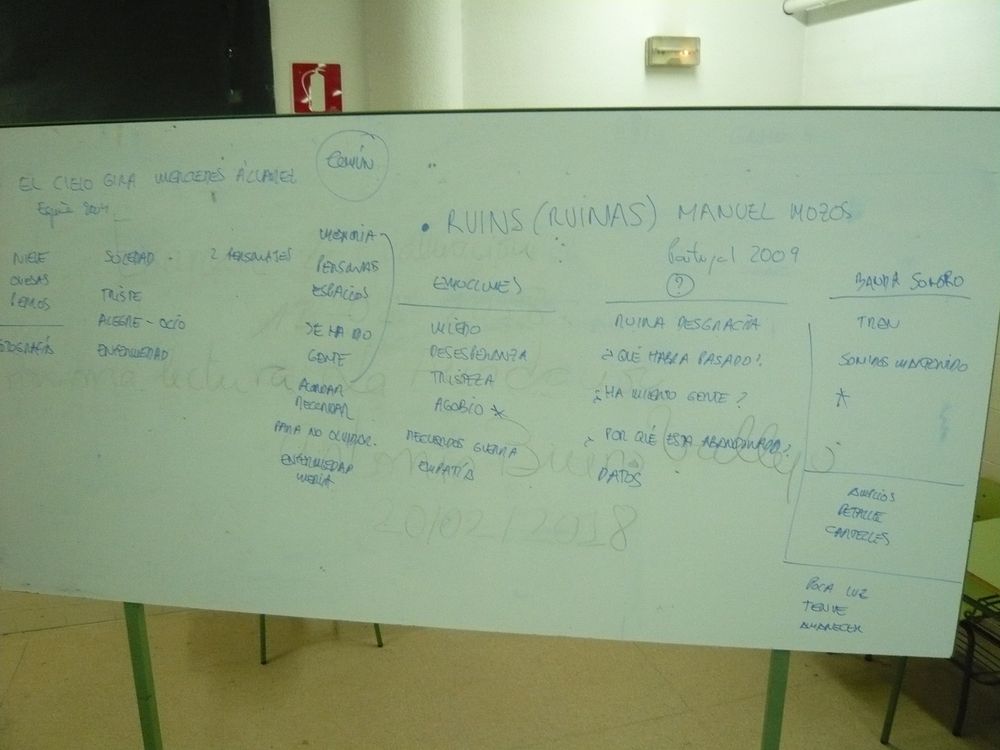 EL CIELO GIRA MERCEDES ÁLVAREZ
2004
SOLEDAD 2 PERSONAJES
TRISTE
ALEGRE - OCIO
ENFERMEDAD
COMÚN
MEMORIA
PERSONAS
ESPACIOS
SE HA IDO
GENTE
RECORDAR
PARA NO OLVIDAR.
ENFERMEDAD
• RUINS (RUINAS) MANUEL MOZOS
Portugal 2009
EMOCIONES
MIEDO
DESESPERANZA
TRISTEZA
AGOBIO *
RECUERDOS GUERRA
EMPATÍA
?
RUINA DESGRACIA
¿QUÉ HABRÁ PASADO?
¿HA MUERTO GENTE?
¿POR QUÉ ESTA ABANDONADO?
DATOS
BANDA SONORO
TREN
SONIDO MANTENIDO
*
AMPLIOS
DETALLE
CARTELES
POCA LUZ
TENUE
AMANECER
Buero Vallejo
20/02/2018